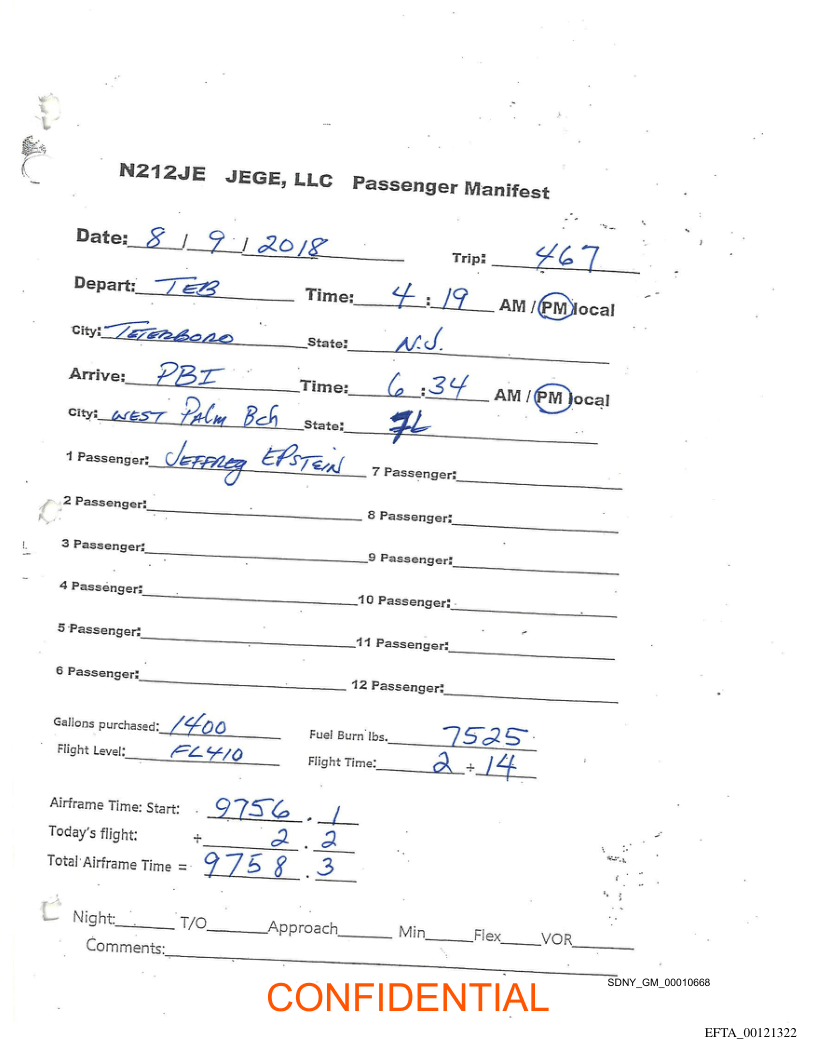 N212JE JEGE, LLC Passenger Manifest
Date: 8 / 9 / 2018 Trip: 467
Depart: TEB Time: 4 : 19 AM / PM local
City: TETERBORO State: N.J.
Arrive: PBI Time: 6 : 34 AM / PM local
City: WEST PALM BCh State: FL
1 Passenger: JEFFREY EPSTEIN 7 Passenger:
2 Passenger: 8 Passenger:
3 Passenger: 9 Passenger:
4 Passenger: 10 Passenger:
5 Passenger: 11 Passenger:
6 Passenger: 12 Passenger:
Gallons purchased: 1400 Fuel Burn lbs. 7525
Flight Level: FL410 Flight Time: 2 + 14
Airframe Time: Start: 9756 . 1
Today's flight: + 2 . 2
Total Airframe Time = 9758 . 3
Night: T/O Approach Min Flex VOR
Comments:
SDNY_GM_00010668
CONFIDENTIAL
EFTA_00121322